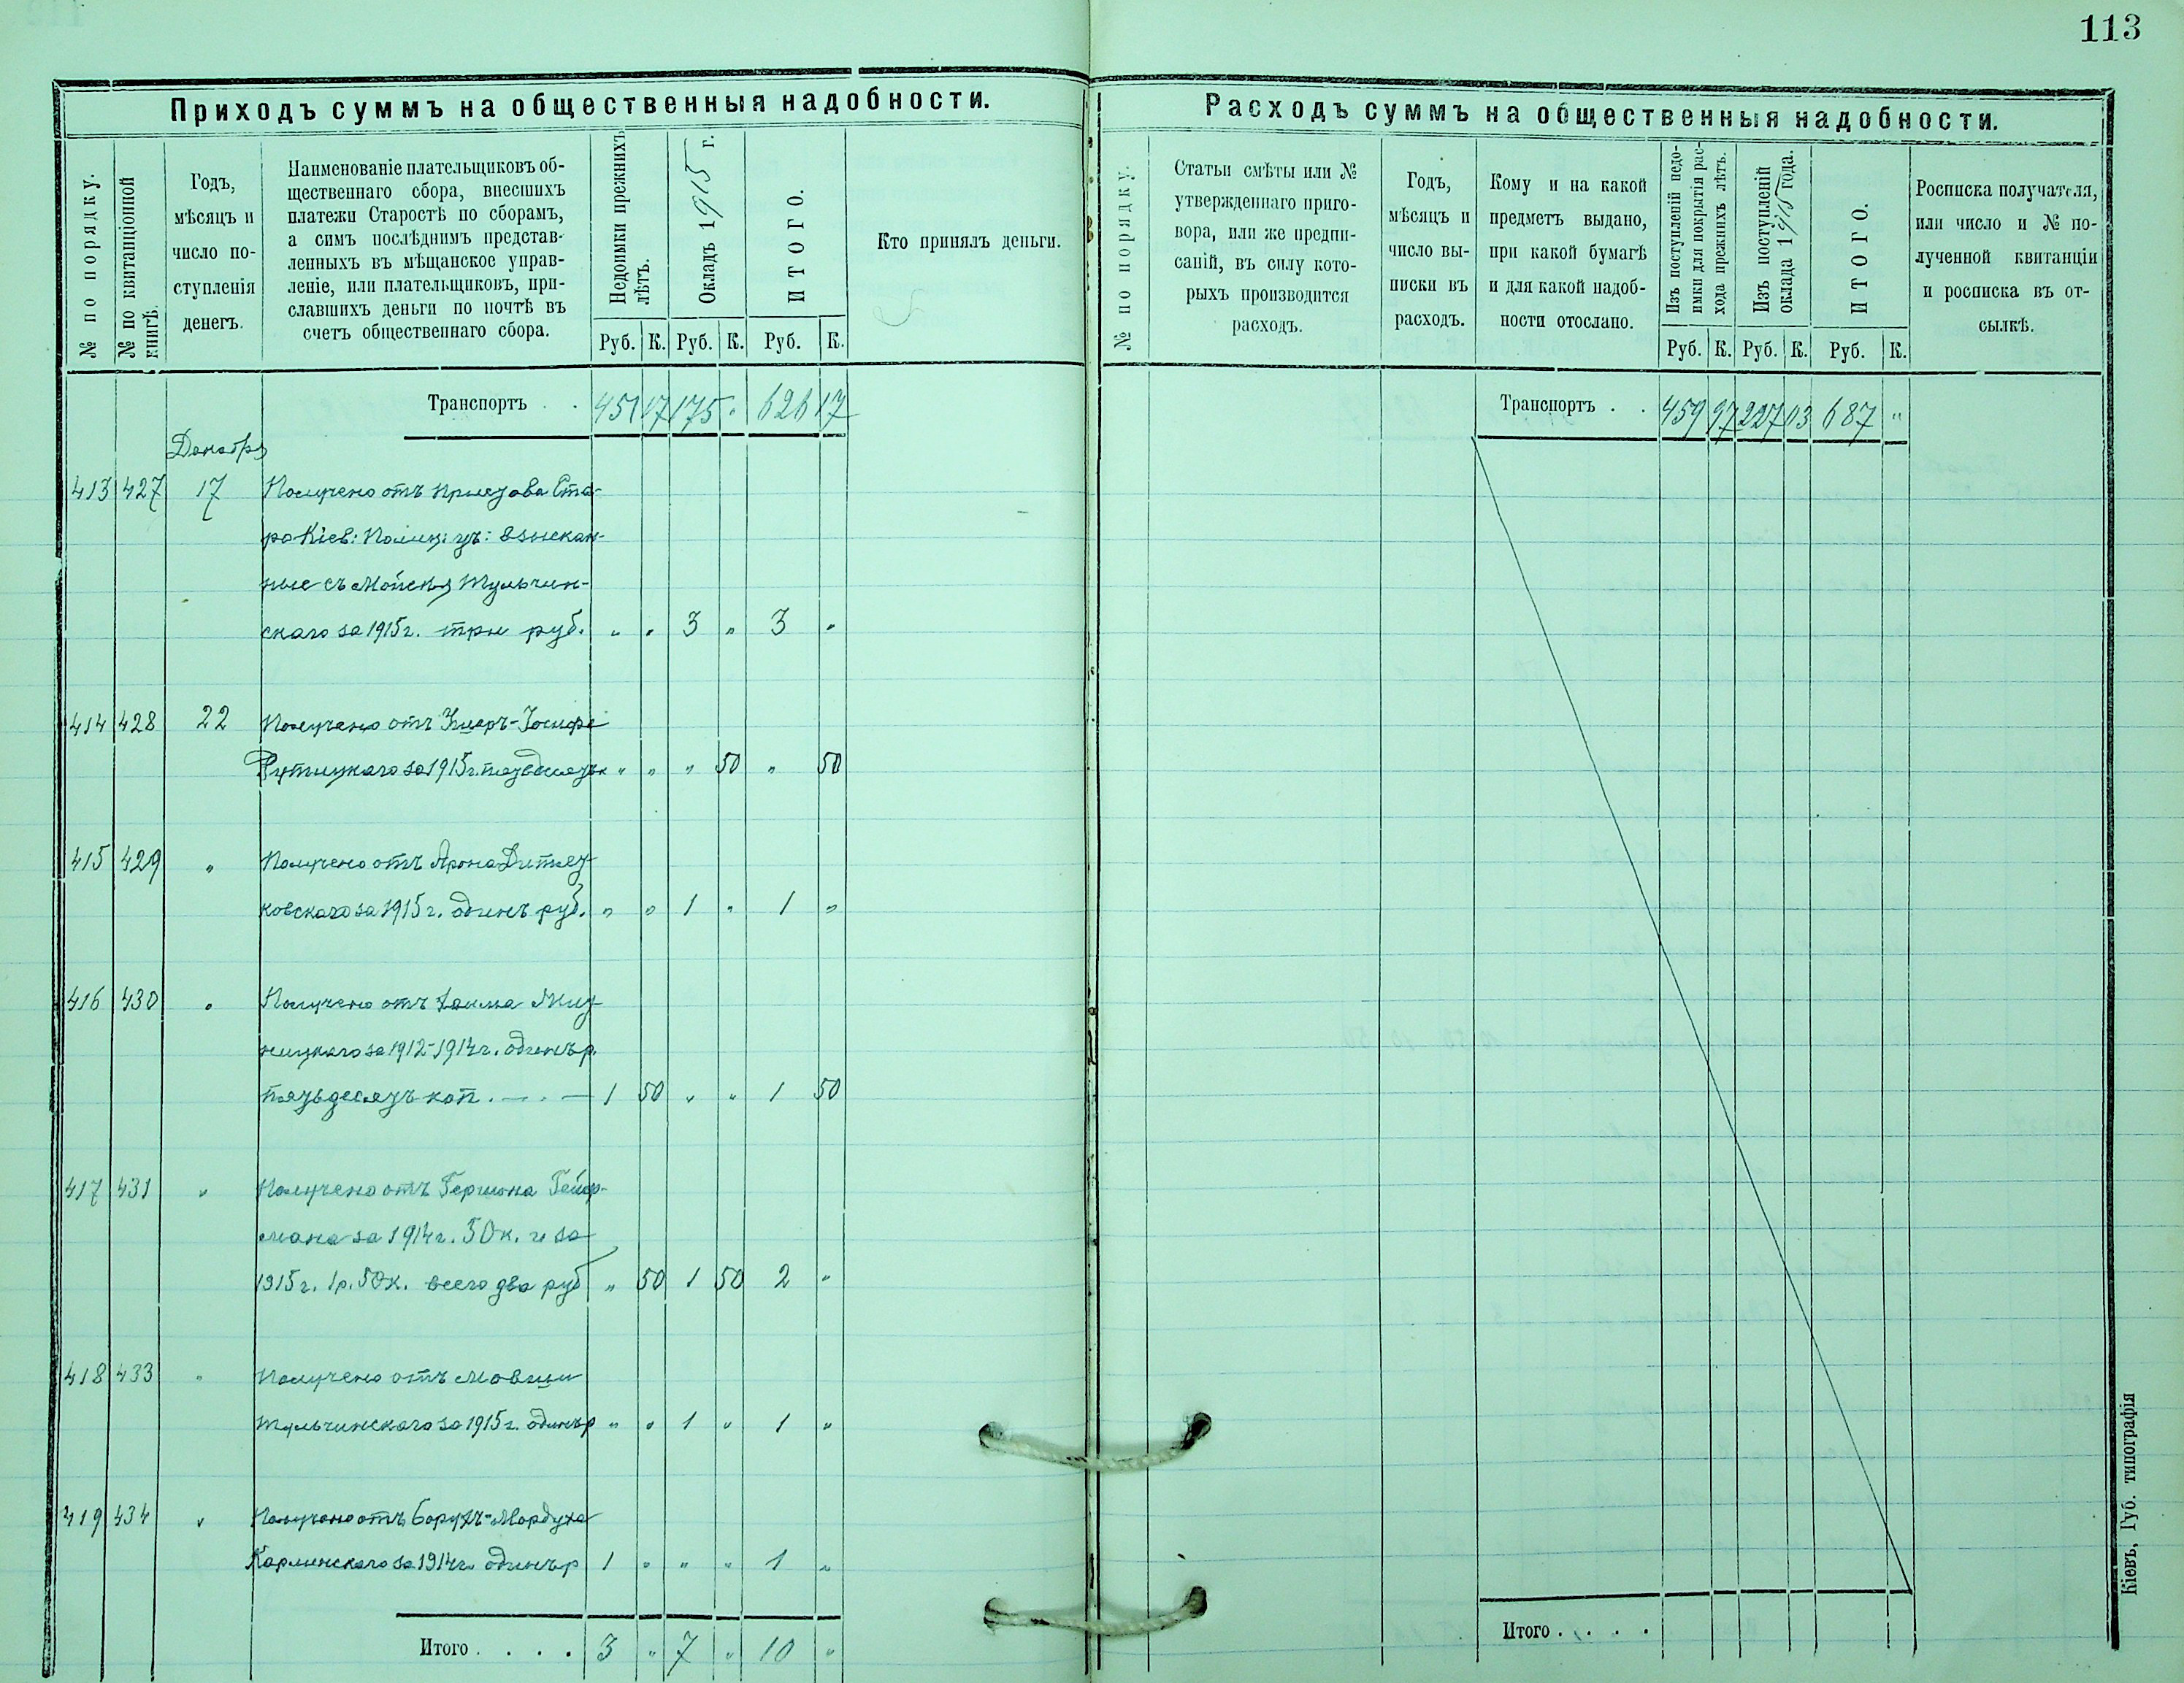 113
Приходъ суммъ на общественныя надобности.
№ по порядку.
№ по квитанціонной
книгѣ.
Годъ,
мѣсяцъ и
число по-
ступленія
денегъ.
Наименованіе плательщиковъ об-
щественнаго сбора, внесшихъ
платежи Старостѣ по сборамъ,
а симъ послѣднимъ представ-
ленныхъ въ мѣщанское управ-
леніе, или плательщиковъ, при-
славшихъ деньги по почтѣ въ
счетъ общественнаго сбора.
Недоимки прежнихъ
лѣтъ.
Окладъ 1915 г.
ИТОГО.
Кто принялъ деньги.
Руб. К. Руб. К. Руб. К.
Транспортъ . . 451 17 175 " 626 17
Декабря
413 427 17 Получено отъ Пристава Ста-
ро Кіев: Полиц: уч: взыскан-
ные съ Мойсѣя Тульчин-
скаго за 1915 г. три руб. " " 3 " 3 "
414 428 22 Получено отъ
за 1915 г. " " " 50 " 50
415 429 " Получено отъ Арона Дитят-
ковскаго за 1915 г. одинъ руб. " " 1 " 1 "
416 430 " Получено отъ Хаима
за 1912-1914 г. одинъ р.
пятьдесятъ коп. 1 50 " " 1 50
417 431 " Получено отъ Гершона Гейер-
мана за 1914 г. 50 к. и за
1915 г. 1 р. 50 к. всего два руб " 50 1 50 2 "
418 433 " Получено отъ Мовши
Тульчинскаго за 1915 г. одинъ р " " 1 " 1 "
419 434 " Получено отъ Борухъ-Мордуха
Карлинскаго за 1914 г. одинъ р 1 " " " 1 "
Итого . . . . 3 " 7 " 10 "
Расходъ суммъ на общественныя надобности.
№ по порядку.
Статьи смѣты или №
утвержденнаго приго-
вора, или же предпи-
саній, въ силу кото-
рыхъ производится
расходъ.
Годъ,
мѣсяцъ и
число вы-
писки въ
расходъ.
Кому и на какой
предметъ выдано,
при какой бумагѣ
и для какой надоб-
ности отослано.
Изъ поступленій недо-
имки для покрытія рас-
хода прежнихъ лѣтъ.
Изъ поступленій
оклада 1915 года.
ИТОГО.
Росписка получателя,
или число и № по-
лученной квитанціи
и росписка въ от-
сылкѣ.
Руб. К. Руб. К. Руб. К.
Транспортъ . . 459 97 227 03 687 "
Итого . . . .
Кіевъ, Губ. типографія